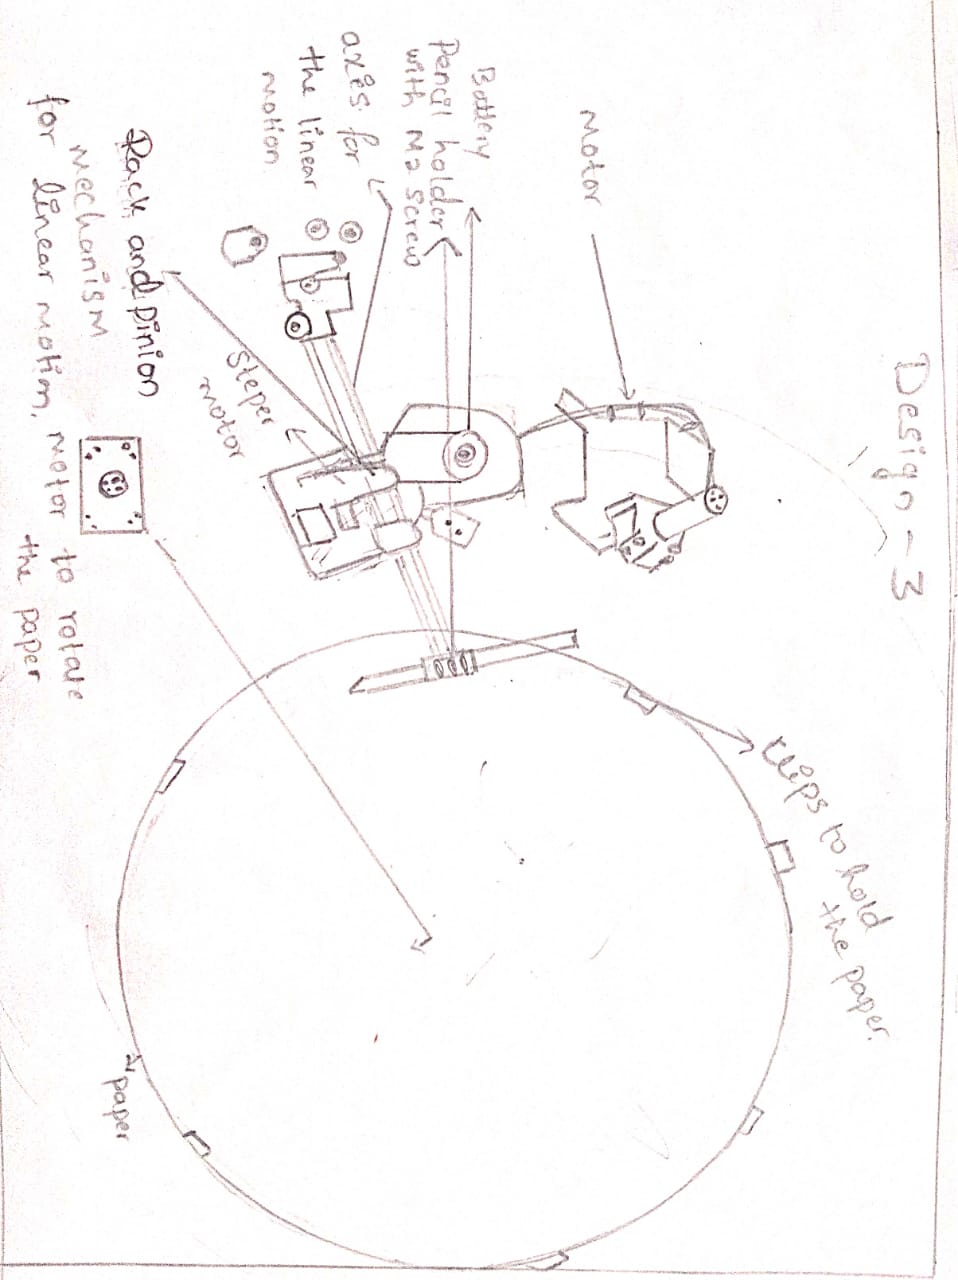 Design - 3
Motor
Battery
Pencil holder
with M2 screw
axes for
the linear
motion
Rack and Pinion
mechanism
for linear motion.
Steper
motor
motor to rotate
the paper
Clips to hold
the paper.
paper